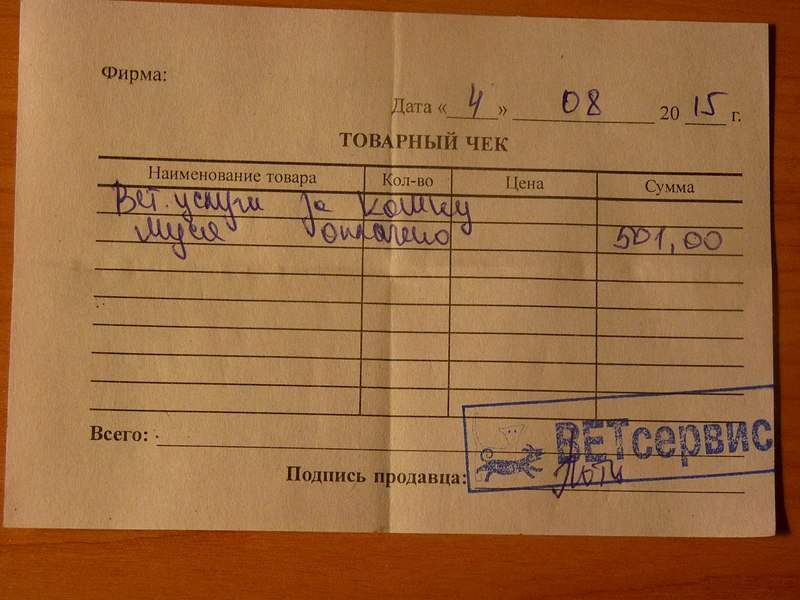 Фирма:
Дата « 4 » 08 20 15 г.
ТОВАРНЫЙ ЧЕК
Наименование товара Кол-во Цена Сумма
Вет. услуги за кошку
Муся оплачено 501,00
Всего:
ВЕТсервис
Подпись продавца: